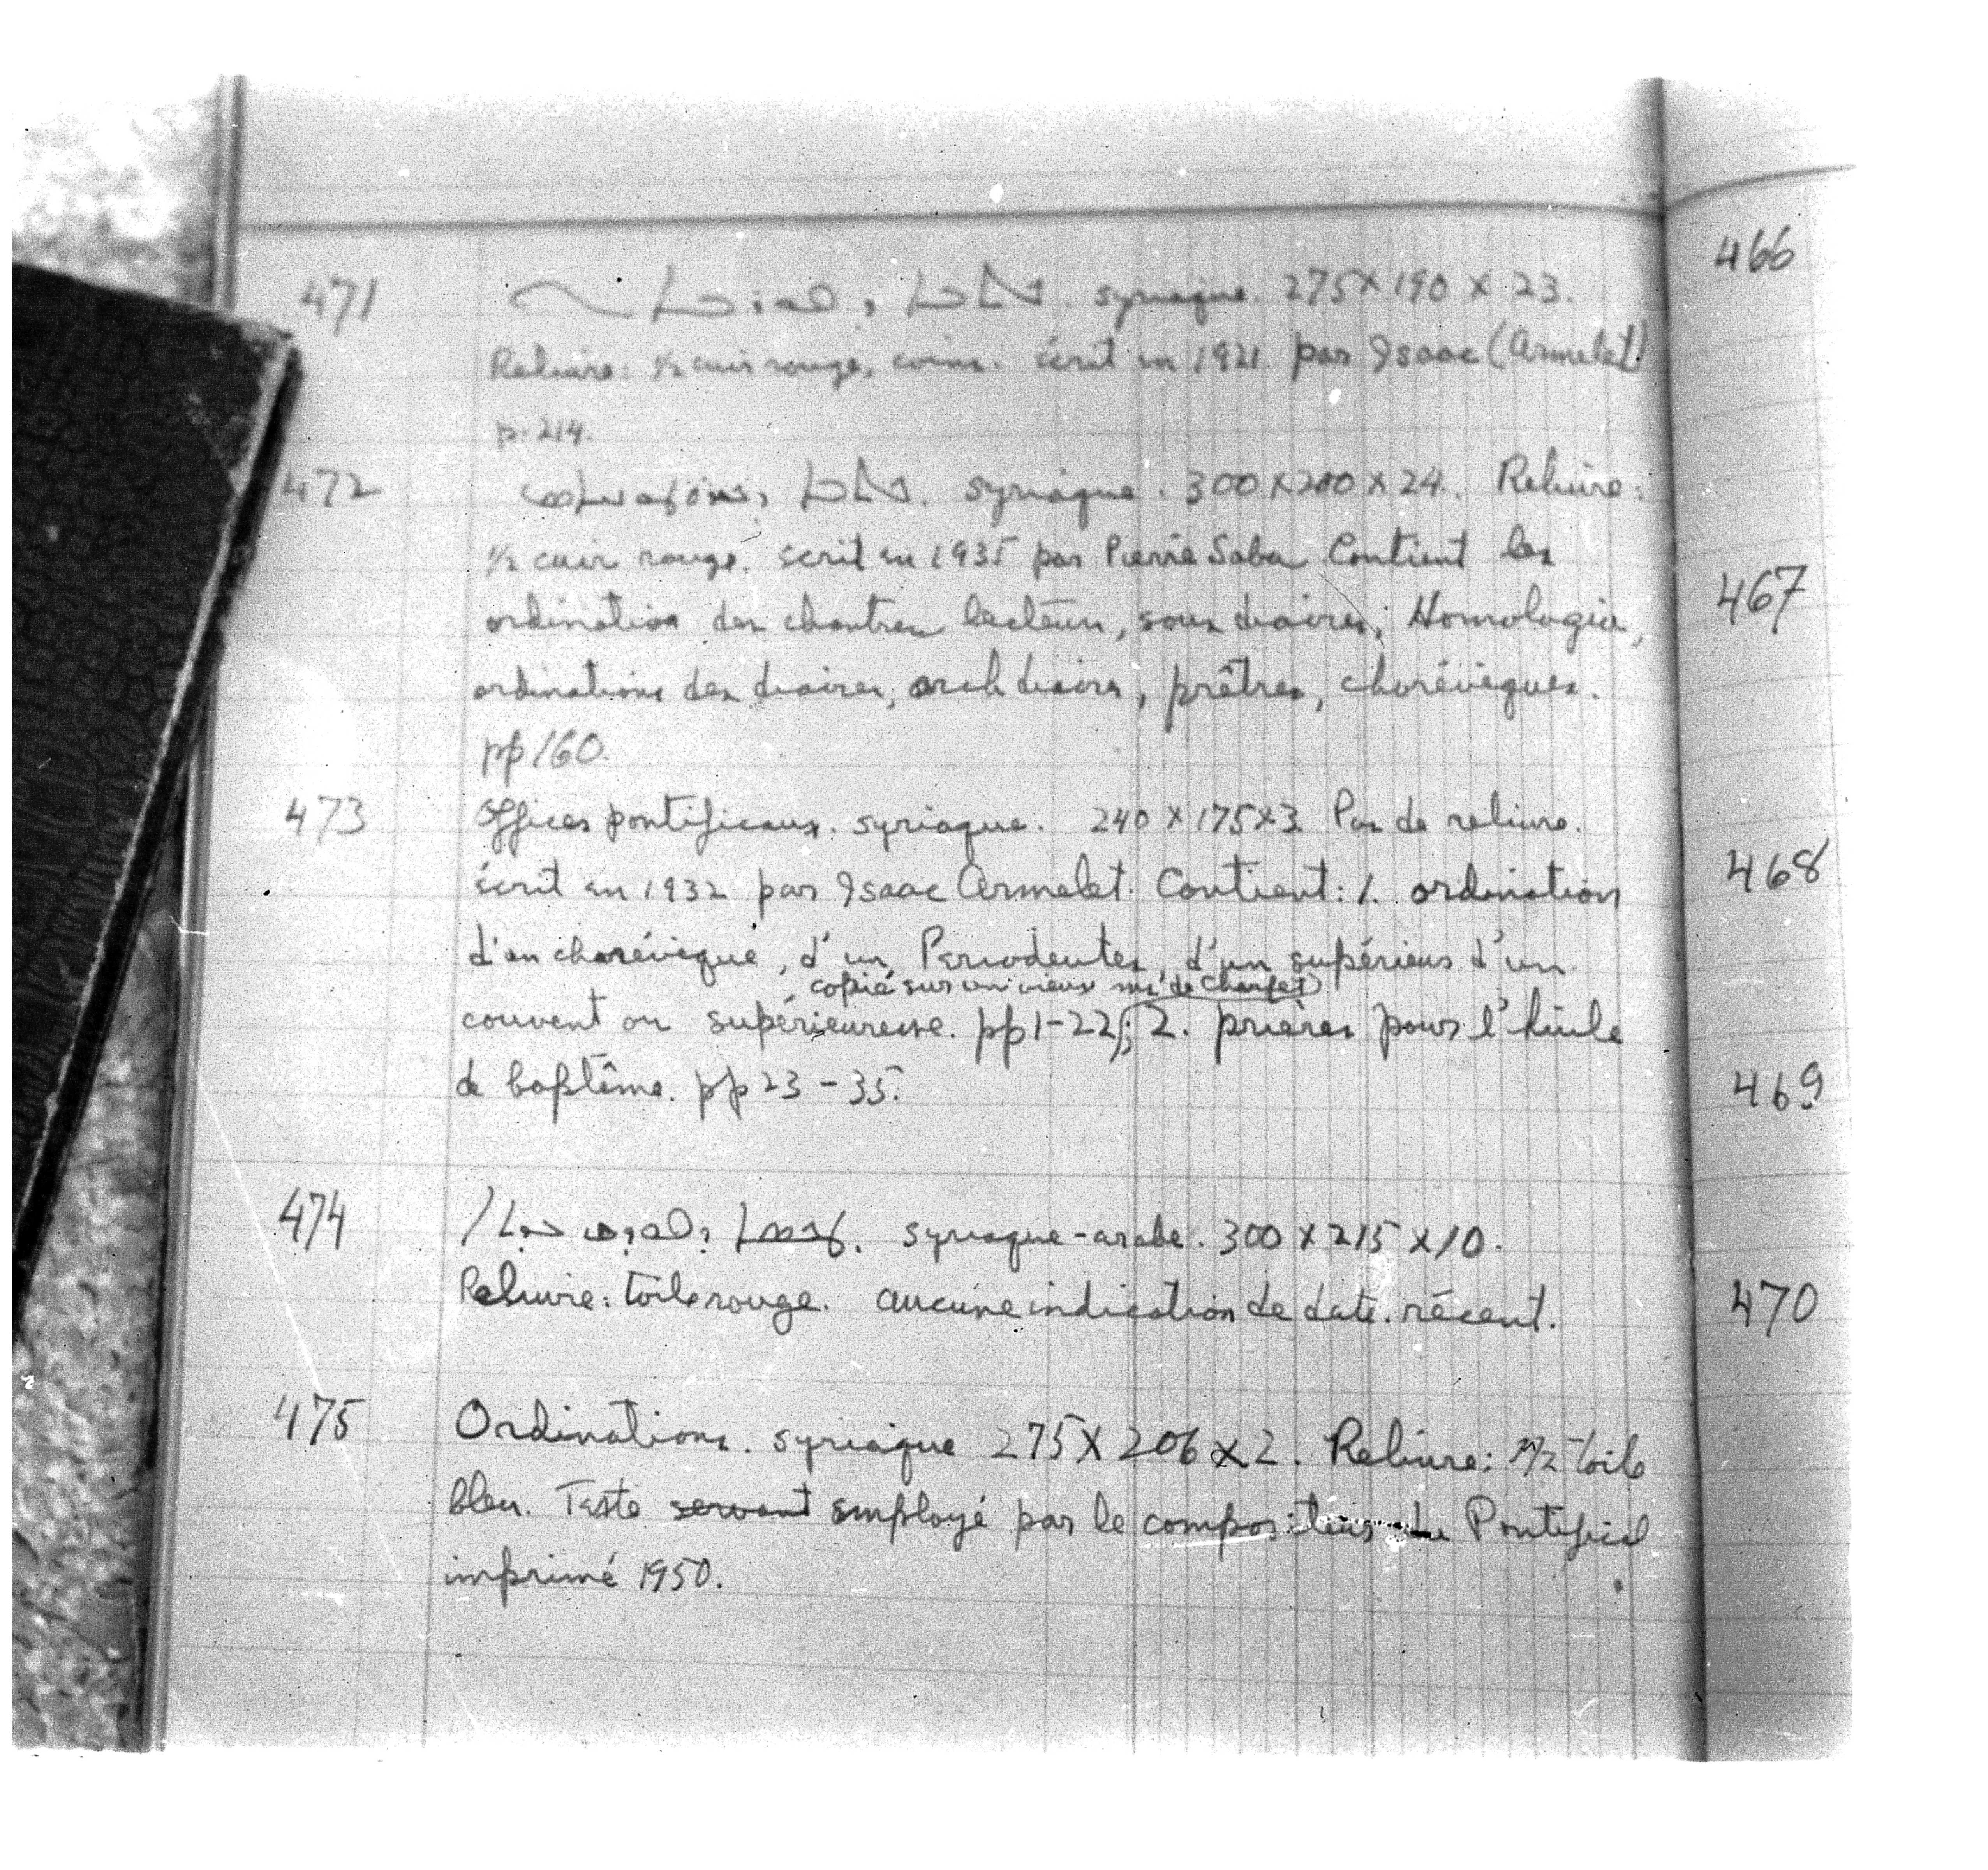 471 ܟܬܒܐ ܕ syriaque. 275 × 190 × 23.
Reliure: ½ cuir rouge, coins. écrit en 1921 par Isaac (Armelet)
p. 214.
472 ܟܬܒܐ syriaque. 300 × 210 × 24. Reliure:
½ cuir rouge. écrit en 1935 par Pierre Saba Contient les
ordination des chantres lecteurs, sous diacres; Homologia,
ordinations des diacres, arch diacres, prêtres, chorévêques.
pp 160.
473 Offices pontificaux. syriaque. 240 × 175 × 3. Pas de reliure.
écrit en 1932 par Isaac Armelet. Contient: 1. ordination
d'un chorévêque, d'un Periodeutes, d'un supérieur d'un
copié sur un vieux ms de Charfet)
couvent ou supérieuresse. pp 1-22; 2. prières pour l'huile
de baptême. pp 23-35.
474 syriaque-arabe. 300 × 215 × 10.
Reliure: toile rouge. aucune indication de date. récent.
475 Ordinations. syriaque 275 × 206 × 2. Reliure: ½ toile
bleu. Texte servant employé par le compositeur du Pontifical
imprimé 1950.
466
467
468
469
470